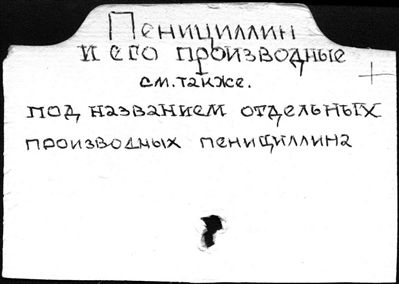 Пенициллин
и его производные
см. также.
под названием отдельных
производных пенициллина